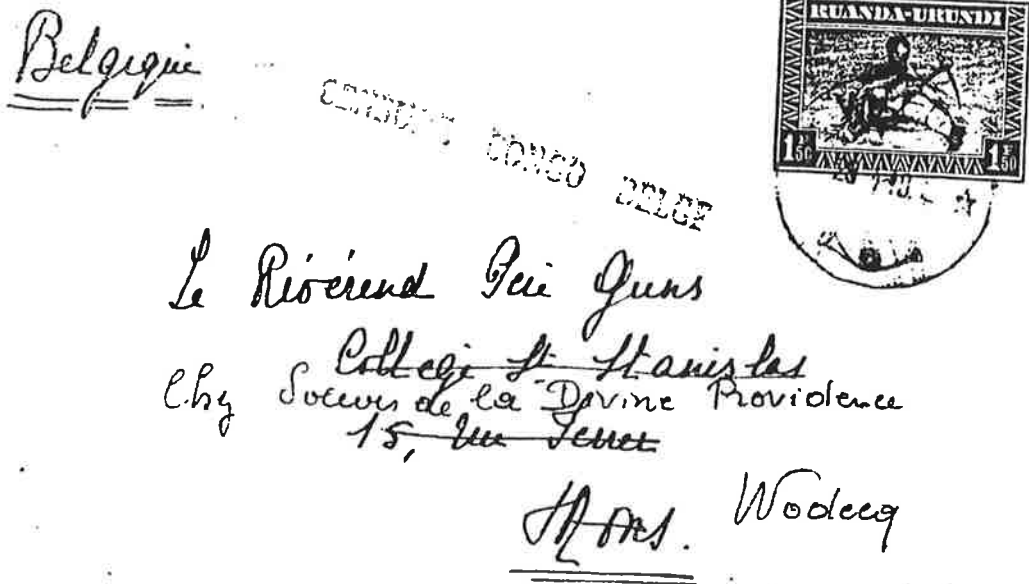 Belgique
RUANDA-URUNDI
1F50 1F50
CONGO BELGE
Le Révérend Père Guns
Collège St Stanislas
Chez Soeurs de la Divine Providence
15, Rue
Mons. Wodecq